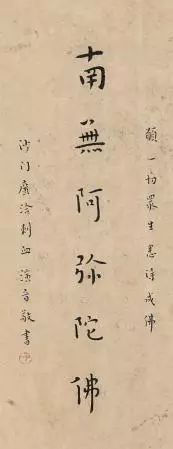 願一切衆生悉得成佛
南無阿弥陀佛
沙門廣洽刺血演音敬書